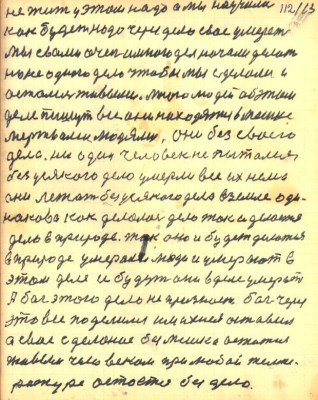 не жить у этом надо а мы научили 112/113
как будет надо через дело свое умереть
мы своим очень много дел начали делать
но не одного дело чтобы мы сделали и
остались живыми. Много людей об этом
деле пишут все они находятся
мертвыми людями, они без своего
дела. ни один человек не пытался
без усякого дело умерли все их нема
они лежат без усякого дела в земле оди-
накова как делалось дело так и делается
дело в природе. так оно и будет делатся
в природе умерали люди и умерают в
этом деле и будут они в деле умерать
А бог этого дело не признает бог через
это все поделился им жизня оставил
а свое сделание бы жить остатся
живым человеком при любой темпе-
ратуре остатся без дело.